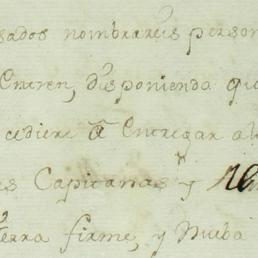 sados nombrareis person
Cneren, dusponiendo que
cediere â Entregar al
es Capitanas y Al
tierra firme, y Nueba